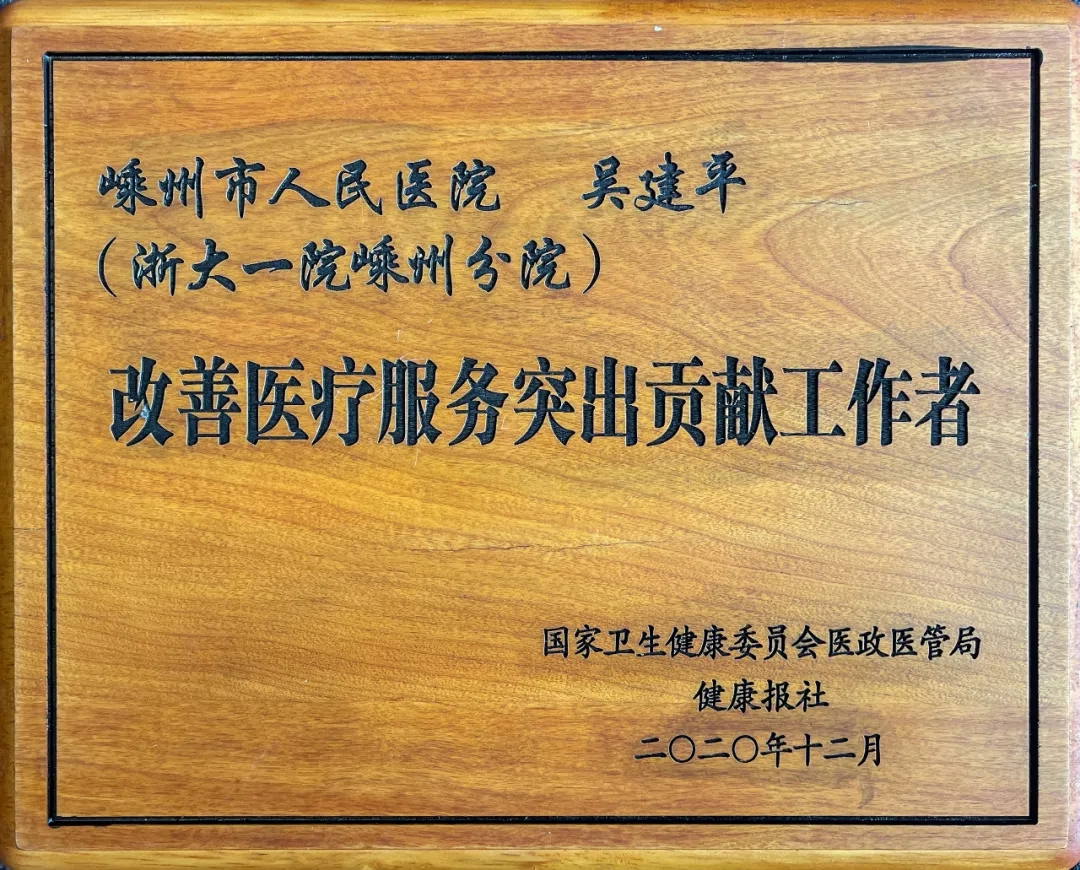 嵊州市人民医院 吴建平
（浙大一院嵊州分院）
改善医疗服务突出贡献工作者
国家卫生健康委员会医政医管局
健康报社
二〇二〇年十二月